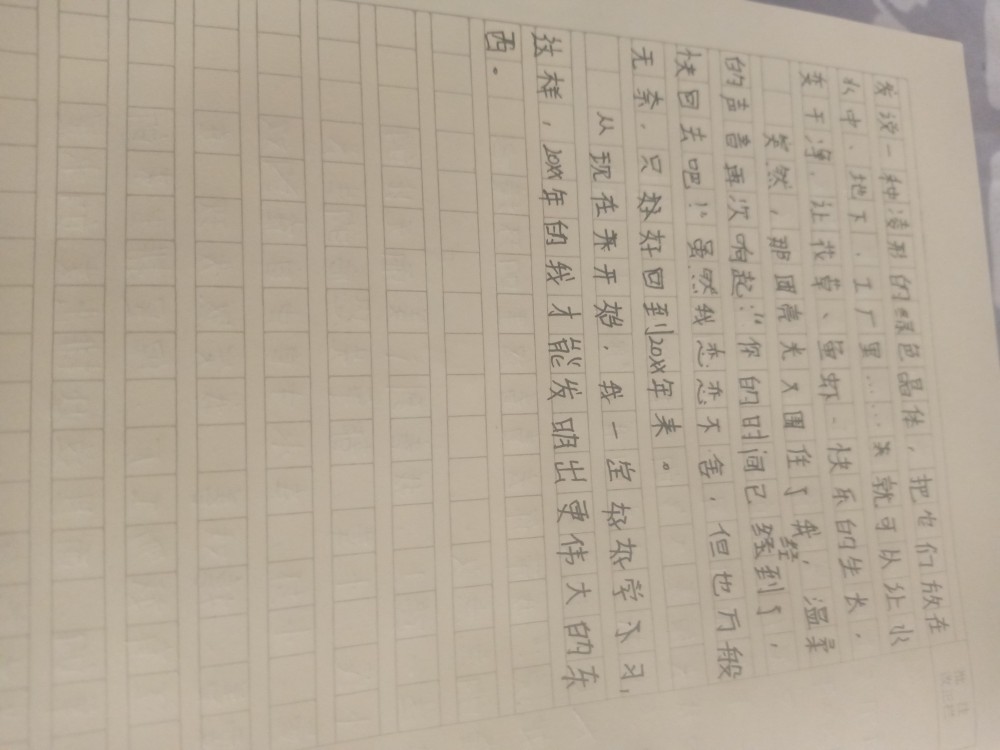 发说一种清形的绿色晶体，把它们放在
水中、地下、工厂里……就可以让水
变干净，让花草、鱼虾、快乐的生长，
突然，那团亮光又围住了我，温柔
的声音再次响起：“你的时间已经到了，
快回去吧！”虽然我恋恋不舍，但也万般
无奈，只好好回到20XX年来。
从现在开始，我一定好好学习，
这样，20XX年的我才能发明出更伟大的东
西。